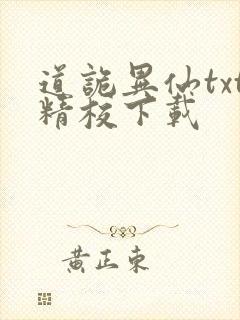 道詭異仙txt
精校下載
黃正東